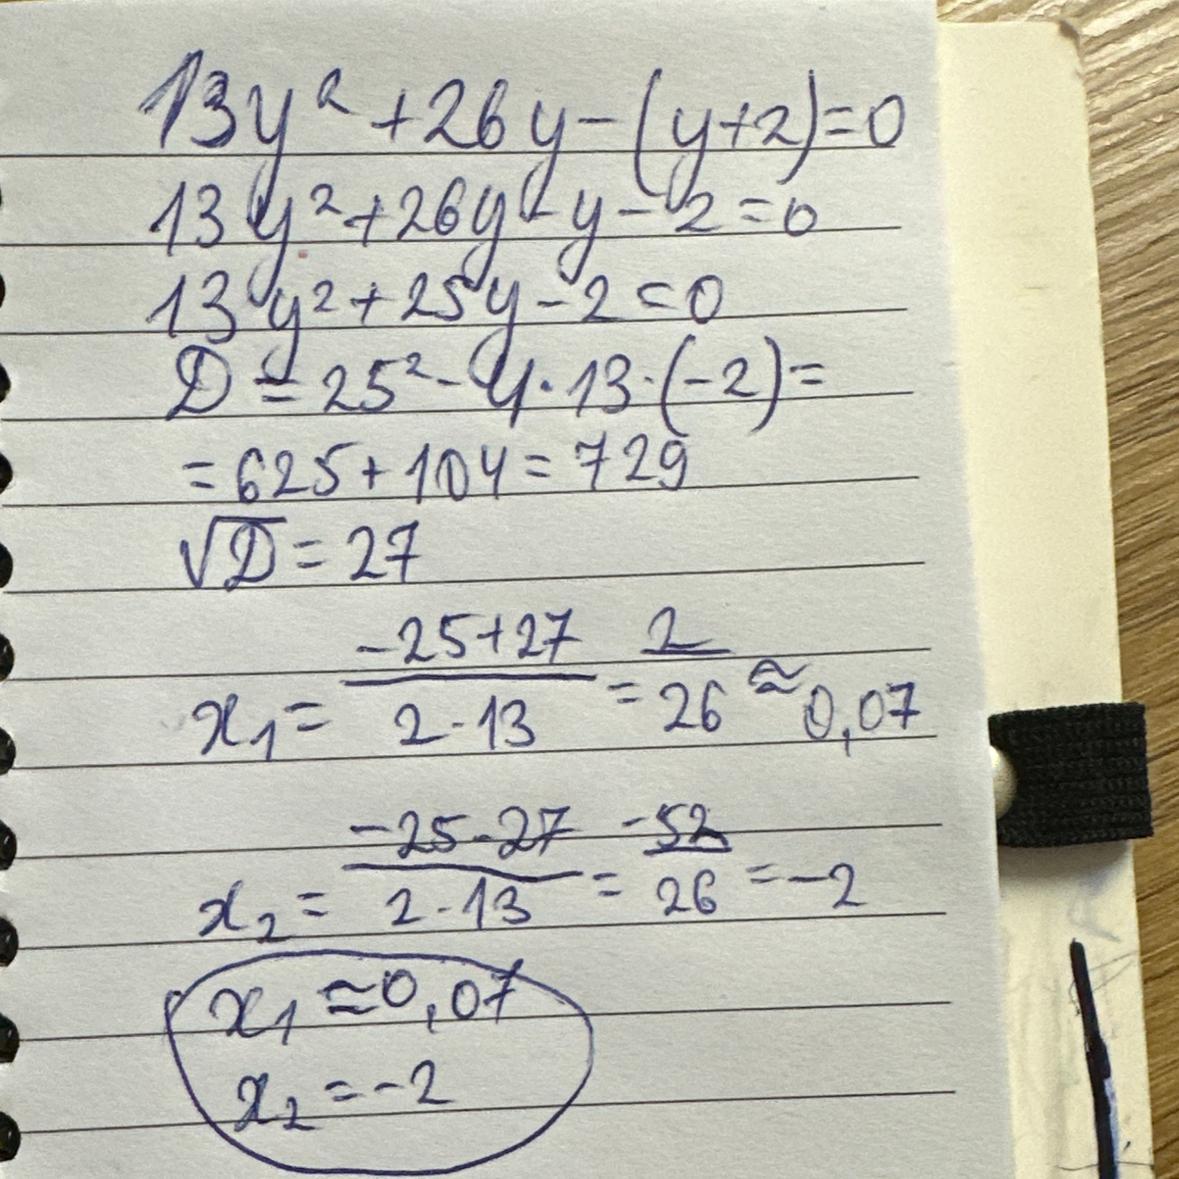 13y² + 26y - (y+2) = 0
13y² + 26y - y - 2 = 0
13y² + 25y - 2 = 0
D = 25² - 4·13·(-2) =
= 625 + 104 = 729
√D = 27
x₁ = (-25+27)/(2·13) = 2/26 ≈ 0,07
x₂ = (-25-27)/(2·13) = -52/26 = -2
x₁ ≈ 0,07
x₂ = -2